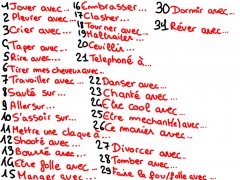 1 Jouer avec...
2 Pleurer avec...
3 Crier avec...
4 Taper avec...
5 Rire avec...
6 Tirer mes cheveux avec...
7 Travailler avec...
8 Sauté sur...
9 Aller sur...
10 S'assoir sur...
11 Mettre une claque à...
12 Shooté avec...
13 Bourré avec...
14 Etre folle avec...
15 Manger avec...
16 Embrasser...
17 Clasher...
18 Tourner avec...
19 Maltraiter...
20 Ceuillir...
21 Telephoné à...
22 Danser avec...
23 Chanté avec...
24 Etre cool avec...
25 Etre méchant(e) avec...
26 Ce marier avec...
27 Divorcer avec...
28 Tomber avec...
29 Faire le fou/folle avec...
30 Dormir avec...
31 Rêver avec...